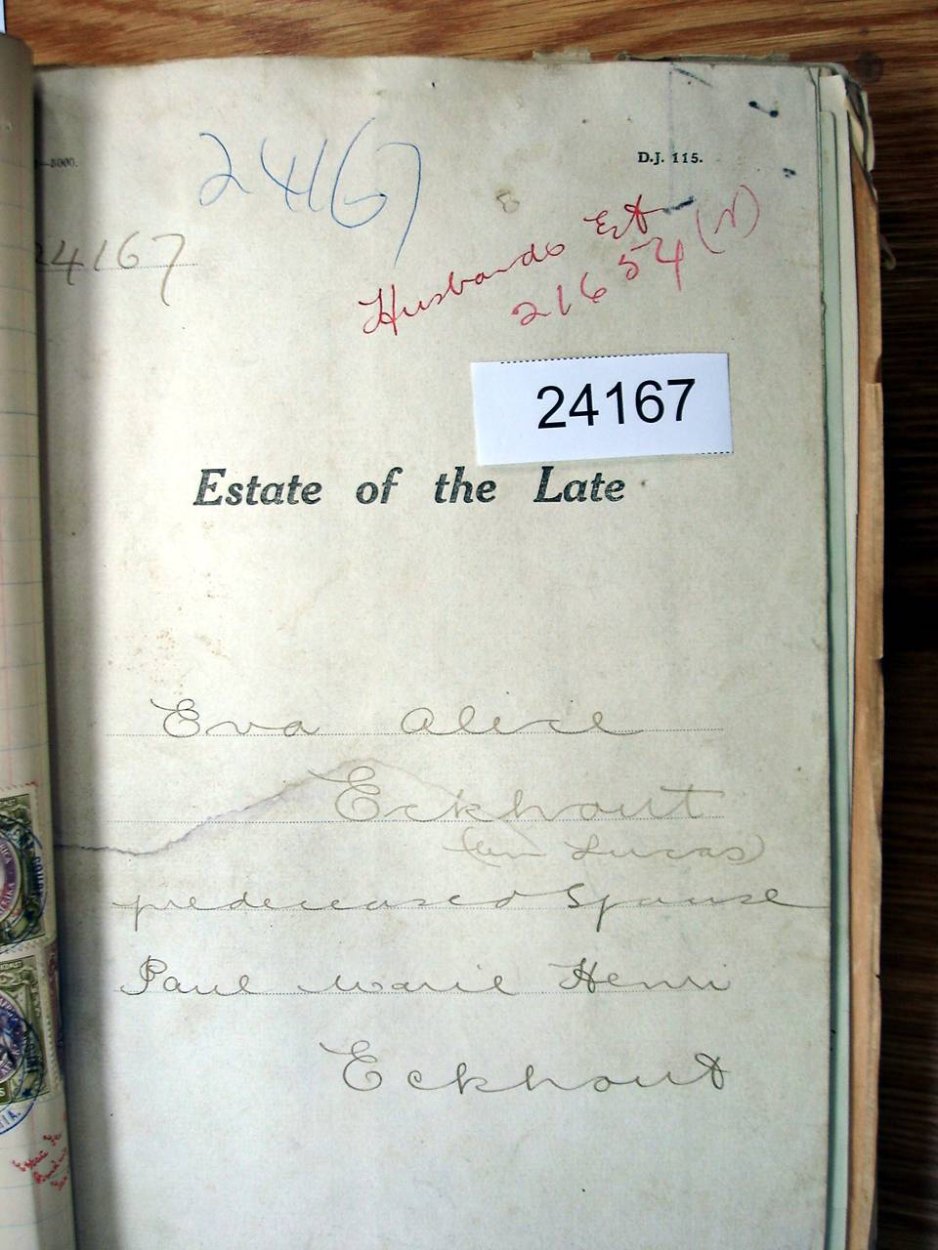 —5000.
D.J. 115.
24167
24167
Husbands Est
21654 (N)
24167
Estate of the Late
Eva Alice
Eckhout
Lucas)
predeceased Spouse
Paul Marie Henri
Eckhout